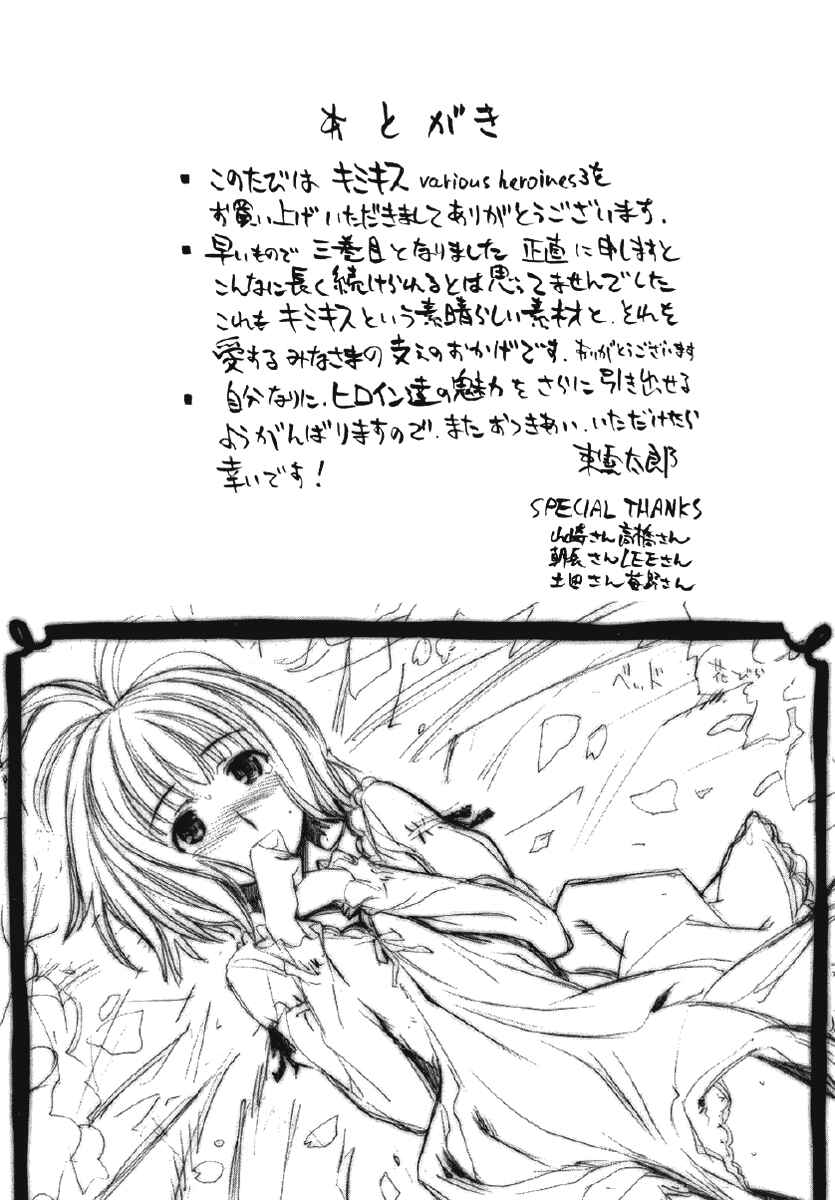 あとがき
▪ このたびは キミキス various heroines3を
お買い上げいただきましてありがとうございます.
▪ 早いもので 三巻目となりました 正直に申しますと
こんなに長く続けられるとは思ってませんでした
これも キミキスという素晴らしい素材と. それを
愛するみなさまの支えのおかげです. ありがとうございます
▪ 自分なりに. ヒロイン達の魅力をさらに引き出せる
ようがんばりますので. またおつきあい. いただけたら
幸いです!
東雲太郎
SPECIAL THANKS
山崎さん 高橋さん
朝長さん LEEさん
土田さん 菅野さん
ベッド 花びら